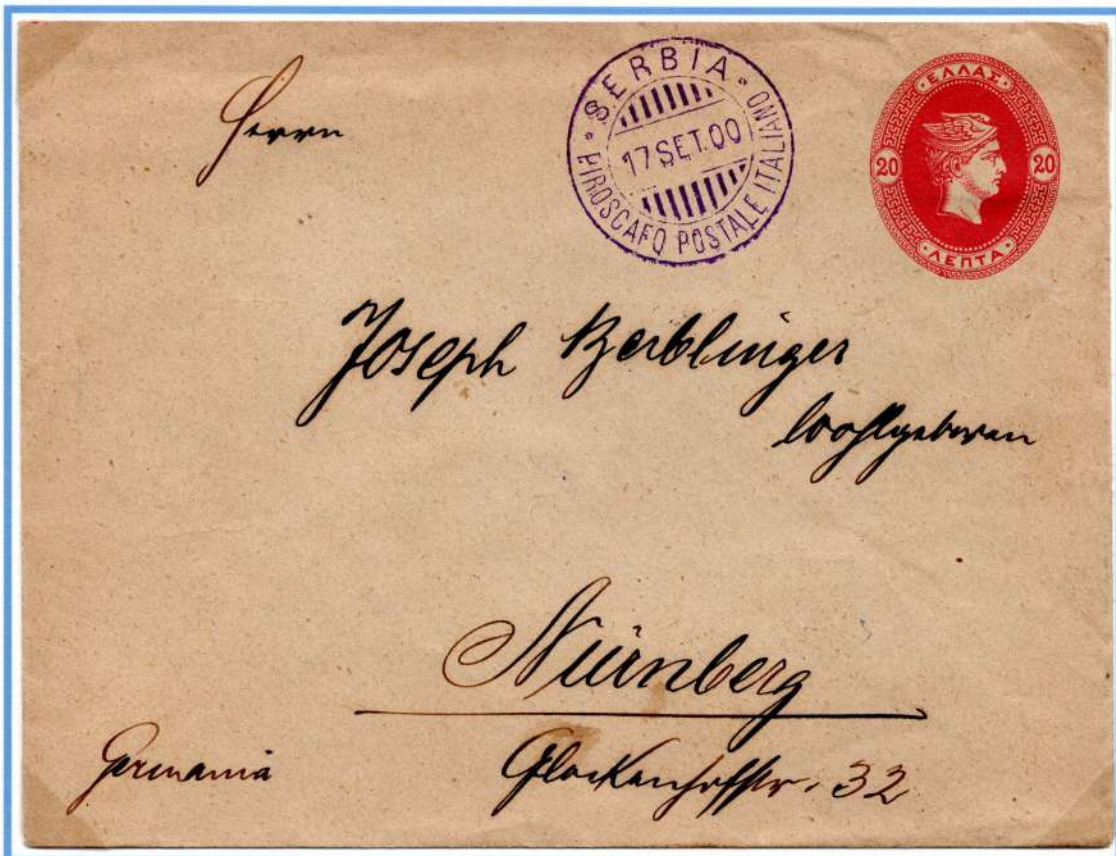 Herrn
SERBIA
17 SET. 00
PIROSCAFO POSTALE ITALIANO
ΕΛΛΑΣ
20 20
ΛΕΠΤΑ
Joseph Berblinger
Wohlgeboren
Nürnberg
Germania
Glockenhofstr. 32